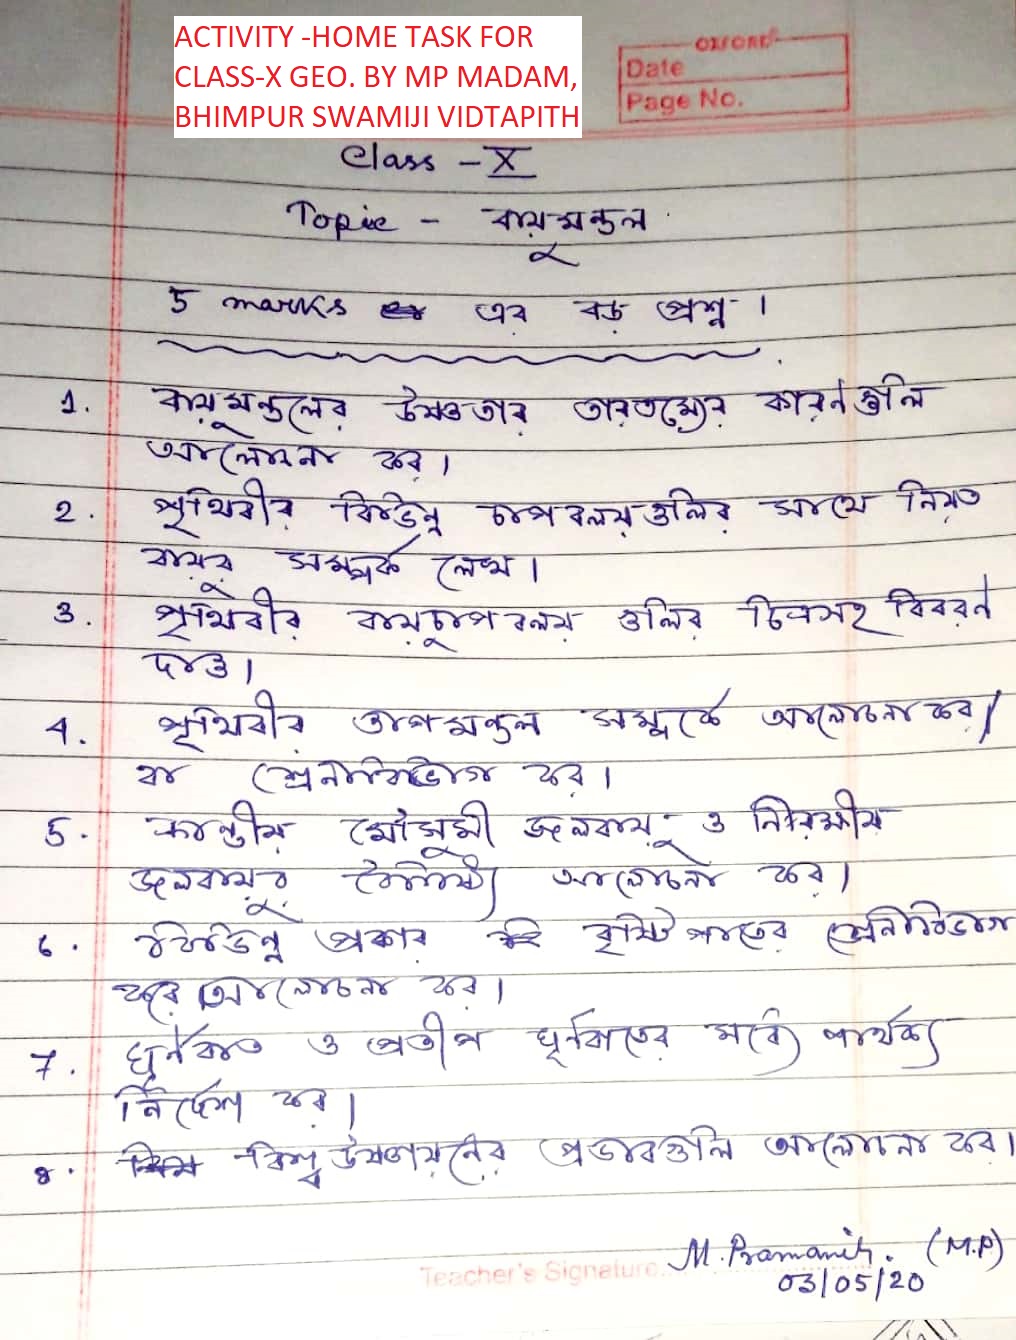 ACTIVITY -HOME TASK FOR
CLASS-X GEO. BY MP MADAM,
BHIMPUR SWAMIJI VIDTAPITH
OXFORD
Date
Page No.
Class - X
Topic - বায়ুমন্ডল
5 marks এর বড় প্রশ্ন।
1. বায়ুমন্ডলের উষ্ণতার তারতম্যের কারণগুলি
আলোচনা কর।
2. পৃথিবীর বিভিন্ন চাপবলয়গুলির সাথে নিয়ত
বায়ুর সম্পর্ক লেখ।
3. পৃথিবীর বায়ুচাপবলয় গুলির চিত্রসহ বিবরণ
দাও।
4. পৃথিবীর তাপমন্ডল সম্পর্কে আলোচনা কর/
বা শ্রেনীবিভাগ কর।
5. ক্রান্তীয় মৌসুমী জলবায়ু ও নিরক্ষীয়
জলবায়ুর বৈশিষ্ট্য আলোচনা কর।
৬. বিভিন্ন প্রকার বৃষ্টিপাতের শ্রেনীবিভাগ
করে আলোচনা কর।
7. ঘূর্নবাত ও প্রতীপ ঘূর্নবাতের মধ্যে পার্থক্য
নির্দেশ কর।
8. বিশ্ব উষ্ণায়নের প্রভাবগুলি আলোচনা কর।
M. Pramanik. (M.P)
Teacher's Signature
03/05/20